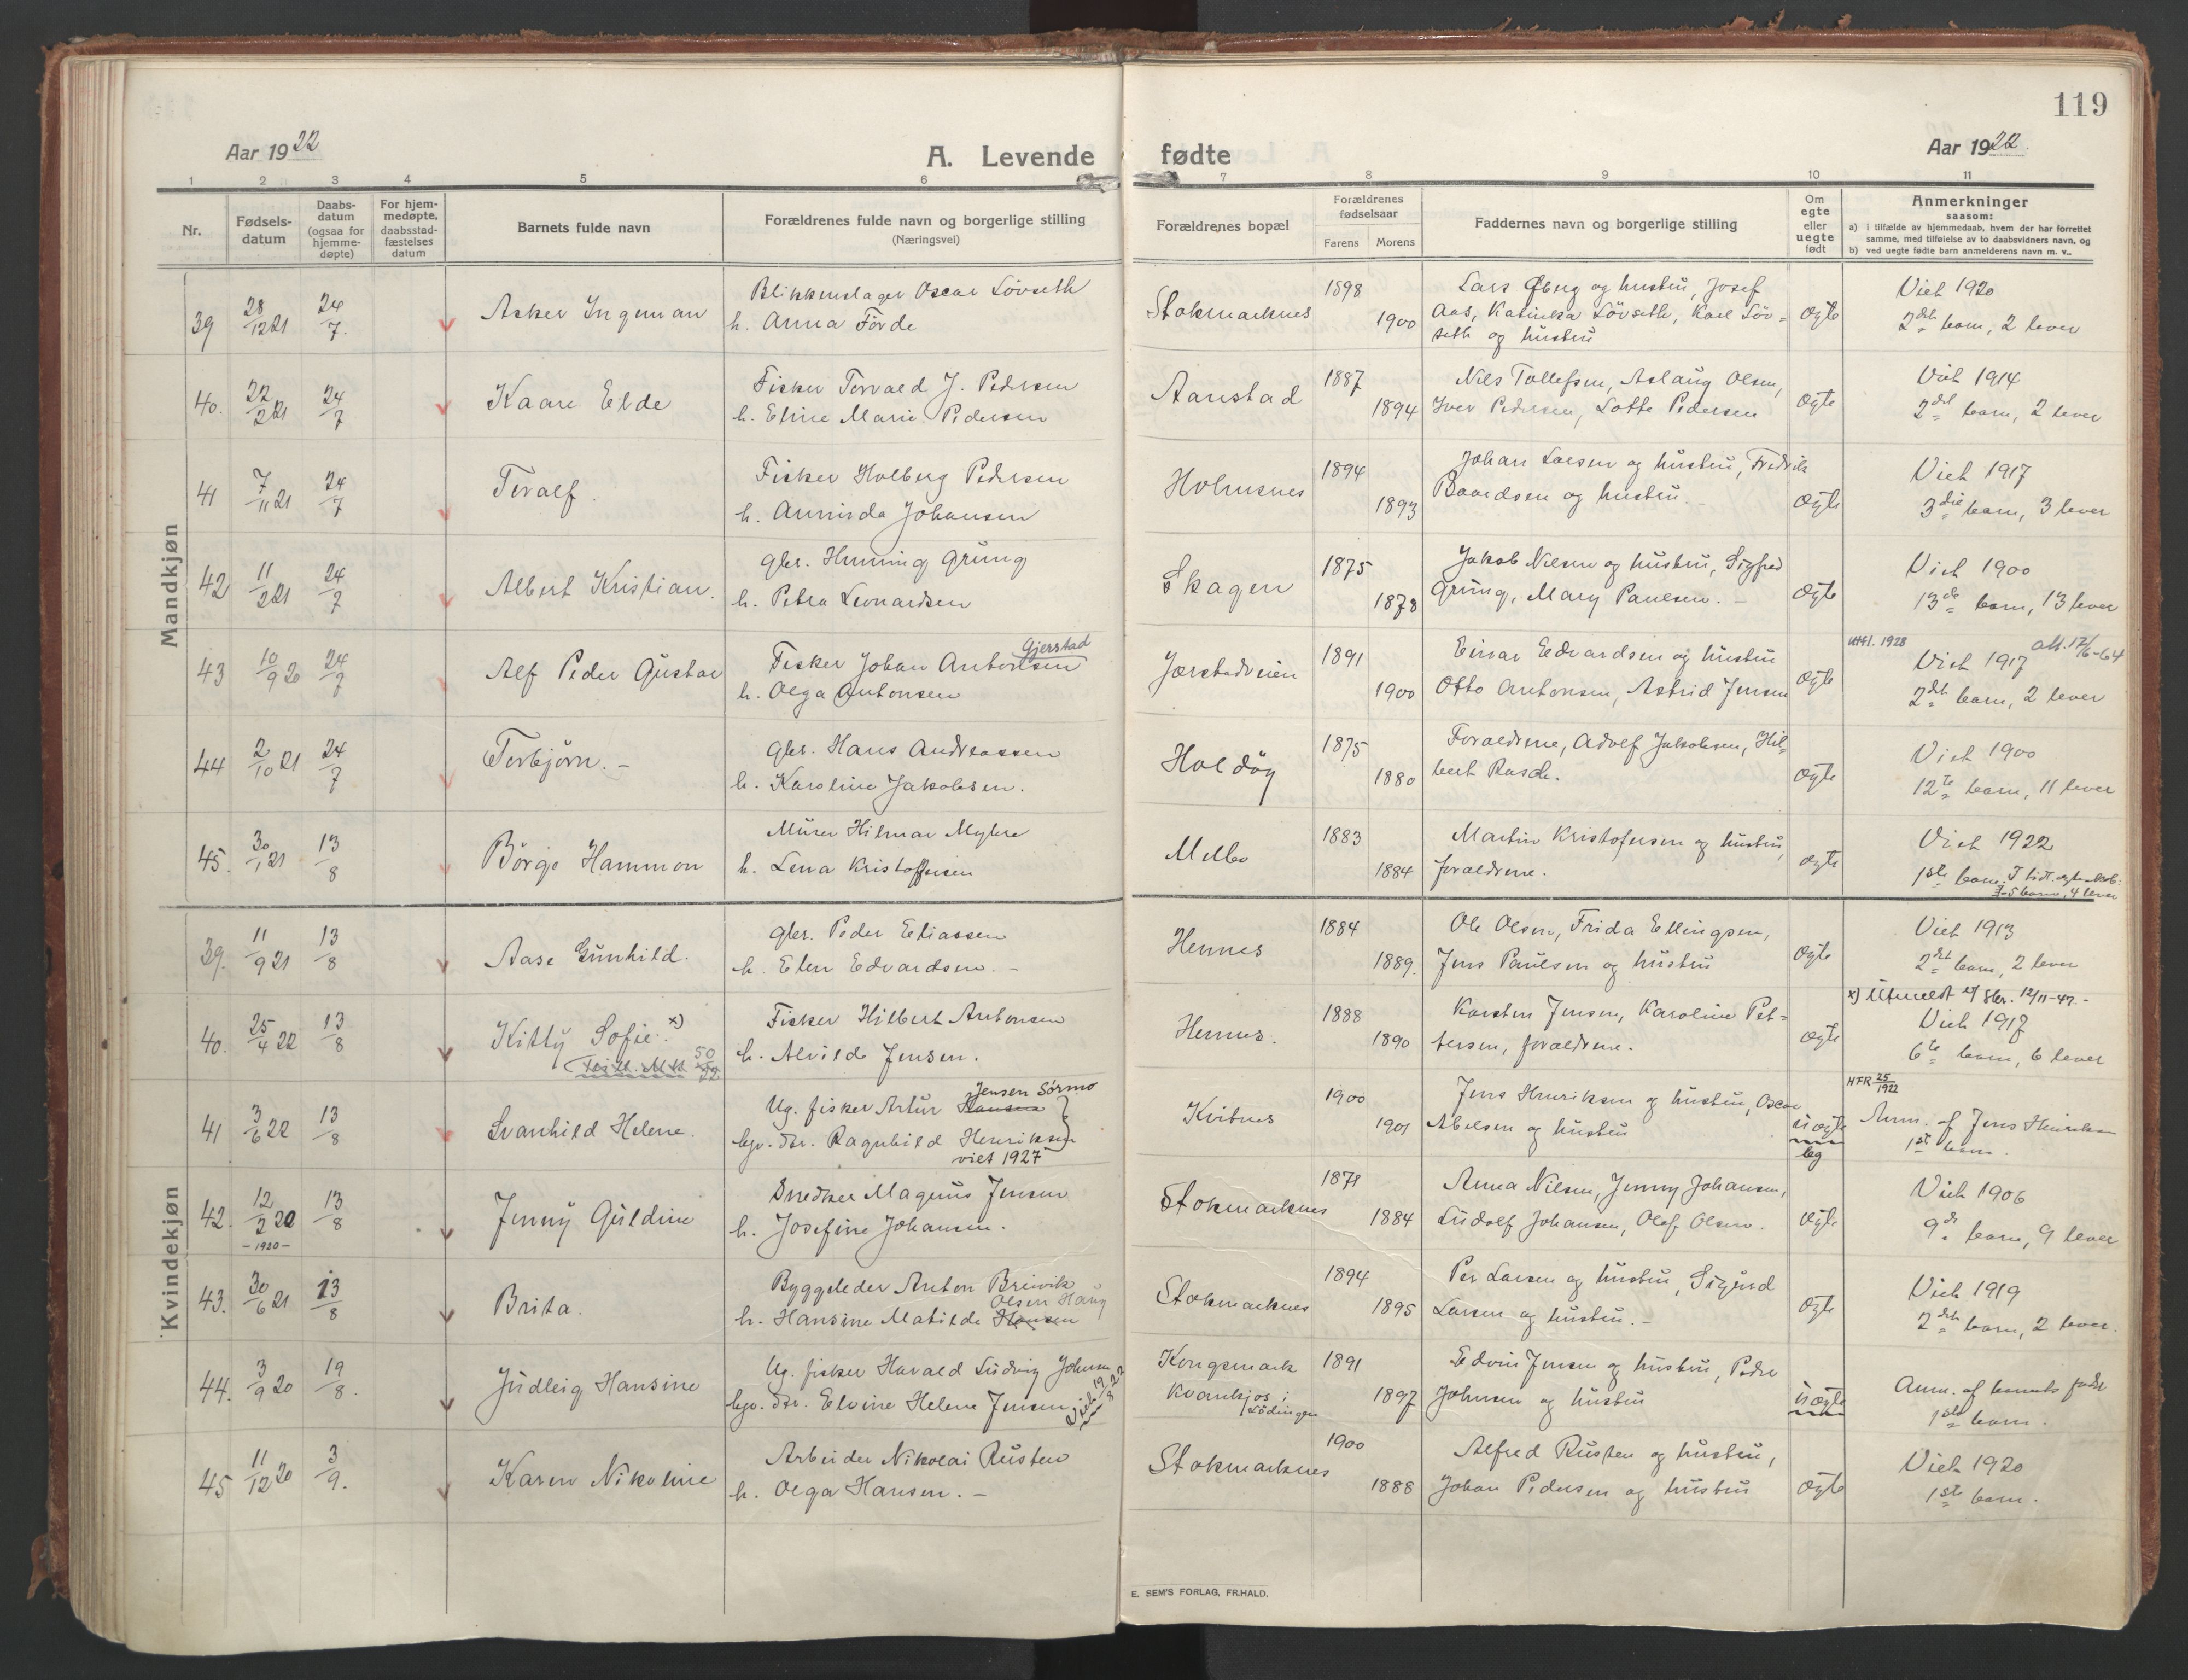 119
Aar 1922
A. Levende fødte
Aar 1922
1 2 3 4 5 6 7 8 9 10 11
Nr.
Fødsels-
datum
Daabs-
datum
(ogsaa for
hjemme-
døpte)
For hjem-
medøpte,
daabsstad-
fæstelses
datum
Barnets fulde navn
Forældrenes fulde navn og borgerlige stilling
(Næringsvei)
Forældrenes bopæl
Forældrenes
fødselsaar
Farens Morens
Faddernes navn og borgerlige stilling
Om
egte
eller
uegte
født
Anmerkninger
saasom:
a) i tilfælde av hjemmedaab, hvem der har forrettet
samme, med tilføielse av to daabsvidners navn, og
b) ved uegte fødte barn anmelderens navn m. v..
Mandkjøn
39 28/12 21 24/7. Asker Ingeman
Blikkenslager Oscar Lövseth
h. Anna Förde
Stokmarknes 1898 1900
Lars Öberg og hustru, Josef
Aas, Katinka Lövseth, Karl Löv=
seth og hustru
ægte
Viet 1920
2det barn, 2 lever
40. 22/2 21 24/7 Kaare Elde
Fisker Torvald J. Pedersen
h. Eline Marie Pedersen
Aanstad 1887 1894
Nils Tollefsen, Aslaug Olsen,
Iver Pedersen, Lotte Pedersen
ægte
Viet 1914
2det barn, 2 lever
41 7/11 21 24/7 Toralf.
Fisker Holberg Pedersen
h. Arminda Johansen
Holmsnes 1894 1893
Johan Larsen og hustru, Fredrik
Baardsen og hustru.
ægte
Viet 1917
3die barn, 3 lever
42 11/2 21 24/7 Albert Kristian.
gbr. Henning Grüng
h. Petra Leonardsen
Skagen 1875 1878
Jakob Nilsen og hustru, Sigfred
Grüng, Mary Paulsen. -
ægte
Viet 1900
13de barn, 13 lever
43 10/9 20 24/7 Alf Peder Gustav
Gjerstad
Fisker Johan Antonsen
h. Olga Antonsen
Jærstadveien 1891 1900
Einar Edvardsen og hustru
Otto Antonsen, Astrid Jensen
ægte
utfl. 1928 att. 12/6-64
Viet 1917
2det barn, 2 lever
44 2/10 21 24/7 Torbjörn. -
gbr. Hans Andreassen
h. Karoline Jakobsen.
Haldöy 1875 1880
Foraeldrene, Adolf Jakobsen, Hil=
bert Rasch.
ægte
Viet 1900
12te barn, 11 lever
45. 30/1 21 13/8 Börge Hammon
Murer Hilmar Myhre
h. Lena Kristoffersen
Melbo 1883 1884
Martin Kristofersen og hustru,
foraeldrene.
ægte
Viet 1922
1ste barn. I tidl. egtesk.
5 barn, 4 lever
Kvindekjøn
39. 11/9 21 13/8 Aase Gunhild.
gbr. Peder Eliassen
h. Elen Edvardsen. -
Hennes 1884 1889.
Ole Olsen, Frida Ellingsen,
Jens Paulsen og hustru
ægte
Viet 1913
2det barn, 2 lever
40. 25/4 22 13/8 Kitty Sofie. x)
50/32
Fisker Hilbert Antonsen
h. Alvilde Jensen.
Hennes. 1888 1890
Karsten Jensen, Karoline Pet=
tersen, foraeldrene.
ægte
x) Utmeldt 12/11-47. -
Viet 1917
6te barn, 6 lever
41 3/6 22 13/8 Svanhild Helene.
Jensen Sörmo
Ug. fisker Artur Hansen
bgv. dtr. Ragnhild Henriksen
viet 1927
Kvitnes 1900 1901
Jens Henriksen og hustru, Oscar
Abelsen og hustru
uægte
HFR 25/1922
Anm. af Jens Henriksen
1ste barn.
42. 12/2 20 13/8 Jenny Guldine
-1920-
Snedker Magnus Jensen
h. Josefine Johansen.
Stokmarknes 1878 1884
Anna Nilsen, Jenny Johansen,
Ludolf Johansen, Olaf Olsen.
ægte
Viet 1906
9de barn, 9 lever
43. 30/6 21 13/8 Brita.
Byggeleder Anton Breivik
Olsen Haug
h. Hansine Matilde Hansen
Stokmarknes 1894 1895
Per Larsen og hustru, Sigurd
Larsen og hustru. -
ægte
Viet 1919
2det barn, 2 lever.
44. 3/9 20 19/8. Judleig Hansine
Ug. fisker Harald Ludvig Johnsen
bgv. dtr. Elvine Helene Jensen viet 19/8 22
Kongsmark
Kvankjos i
Lödingen
1891 1897
Edvin Jensen og hustru, Peder
Johnsen og hustru
uægte
Anm. af barnets fader
1ste barn.
45 11/12 20 3/9. Karen Nikoline
Arbeider Nikolai Rusten
h. Olga Hansen. -
Stokmarknes 1900 1888
Alfred Rusten og hustru,
Johan Pedersen og hustru
ægte
Viet 1920
1ste barn.
E. SEM'S FORLAG, FR.HALD.